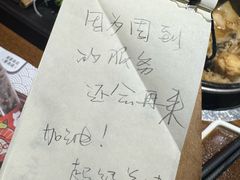 因为周到
的服务
还会再来
加油！